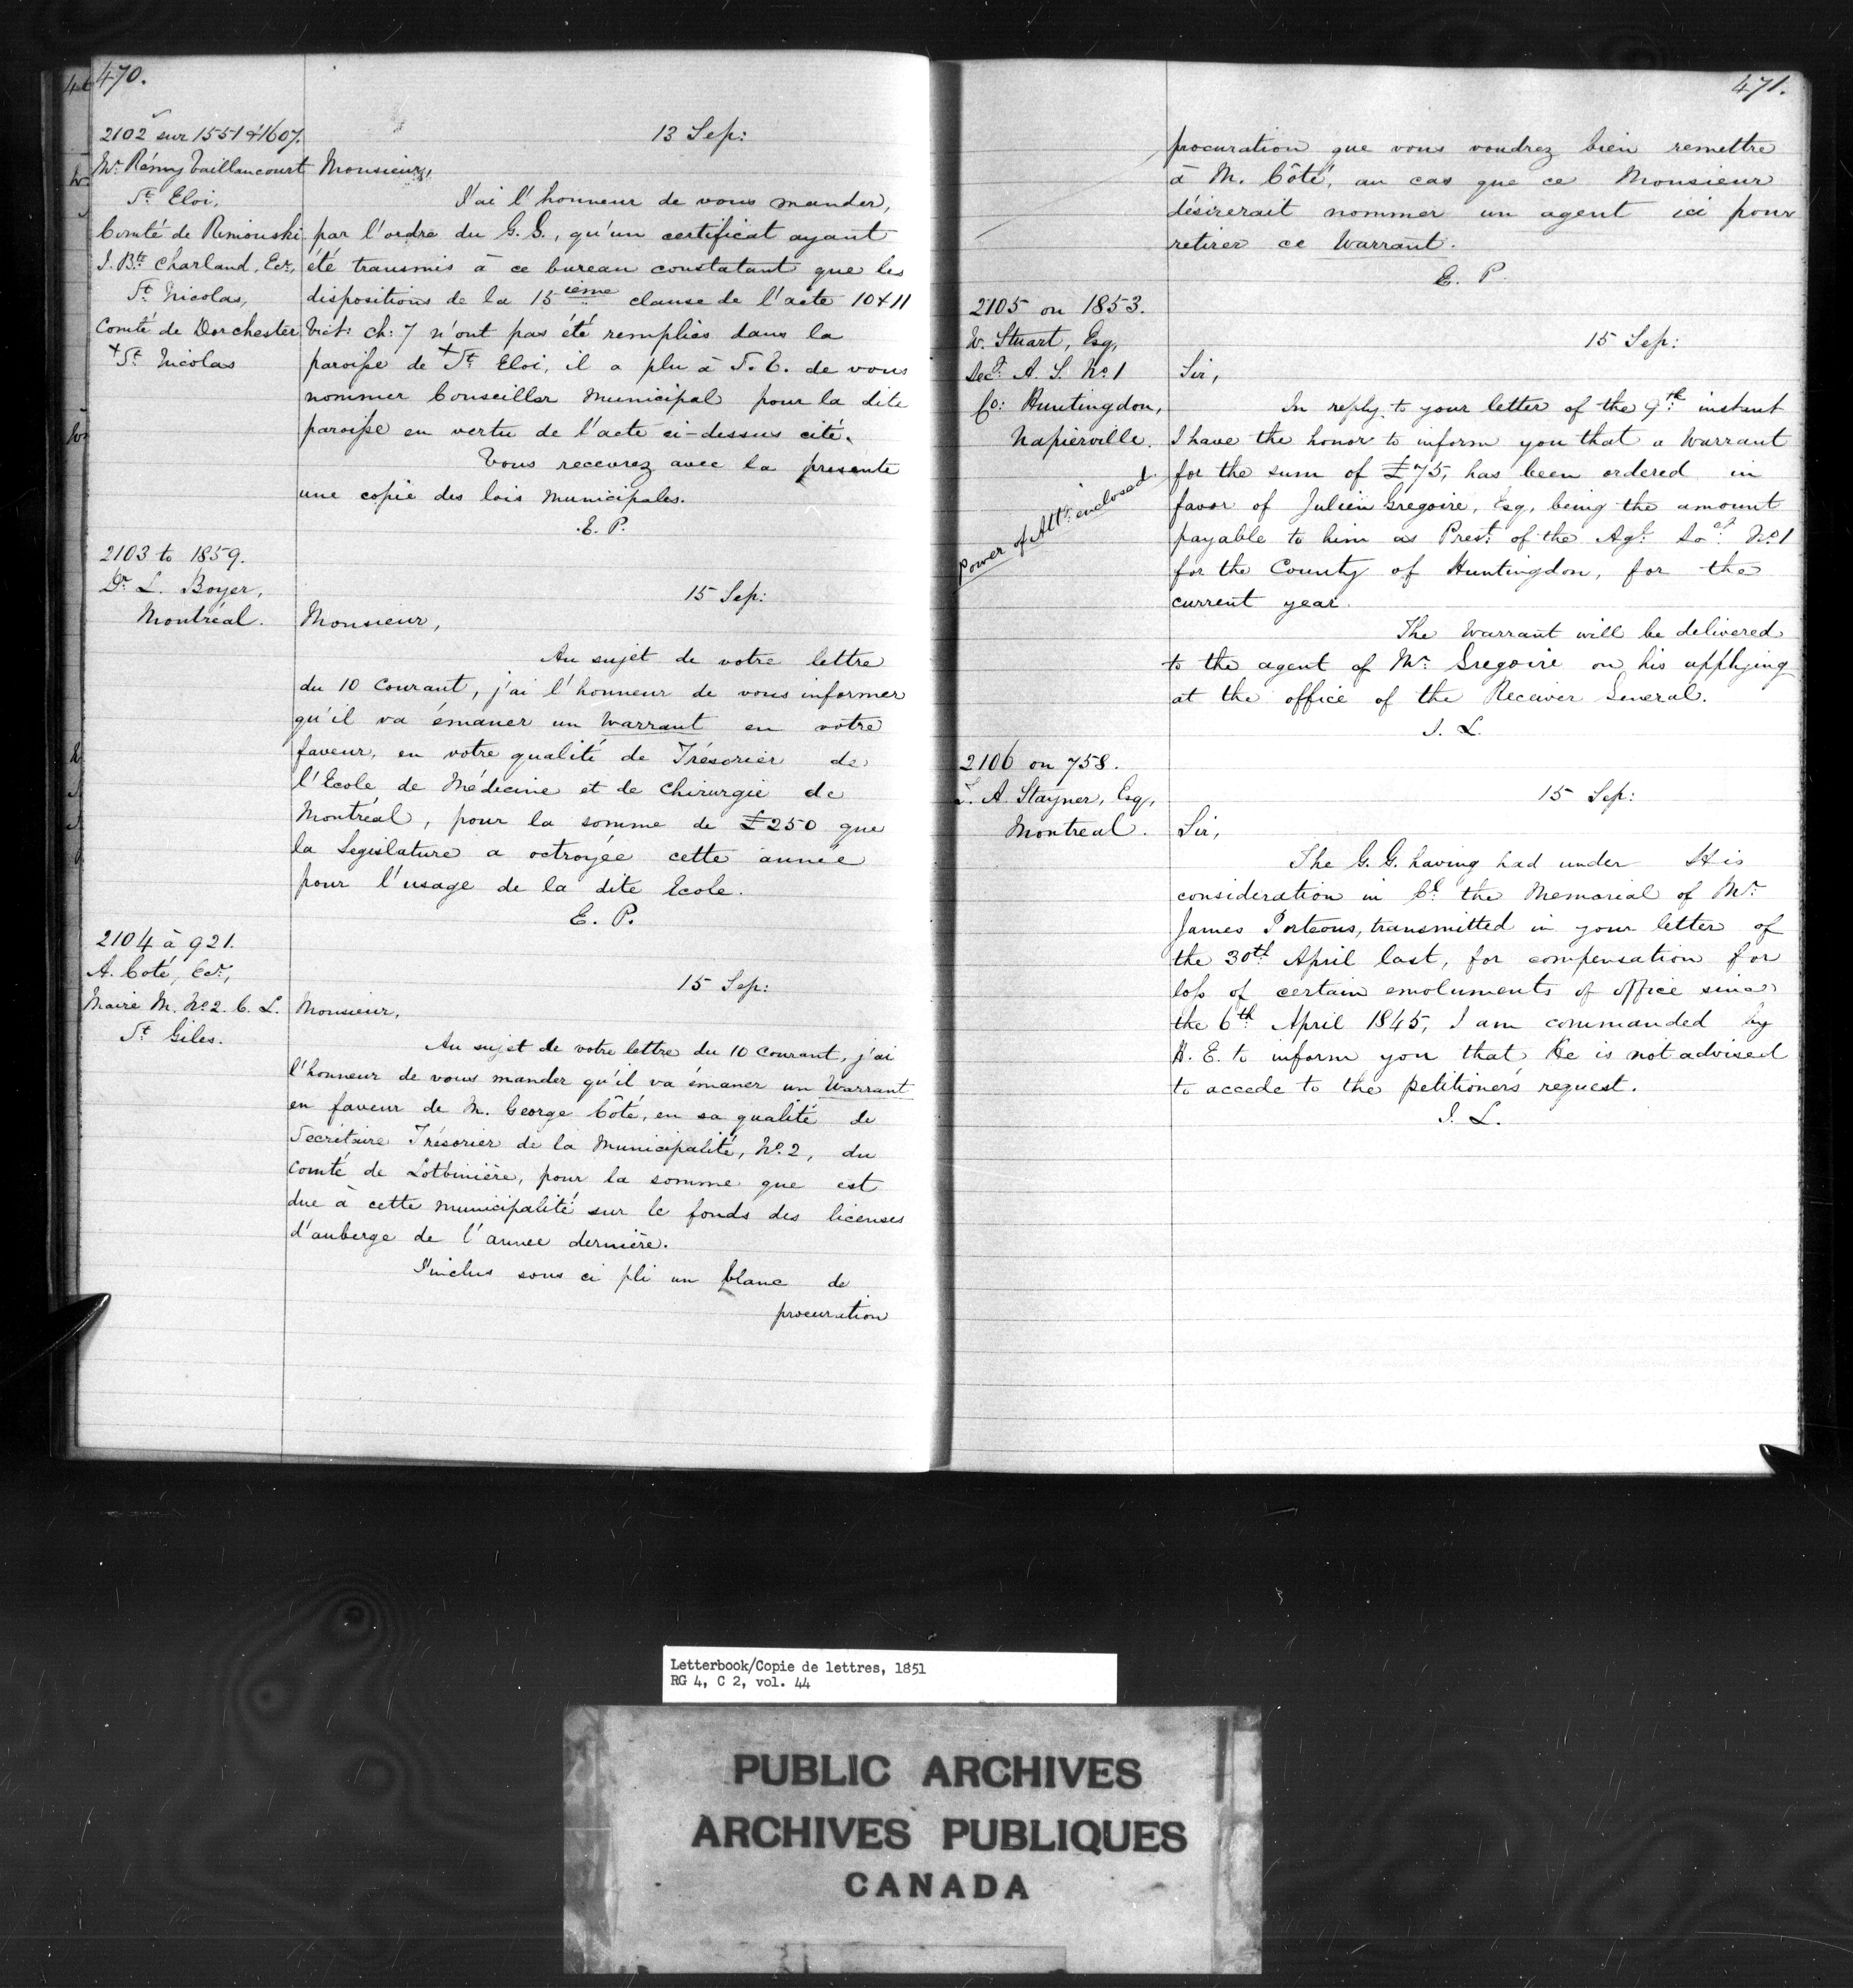 470.
2102 sur 1551 & 1607.
Mr. Rémy Vaillancourt
St. Eloi,
Comté de Rimouski
J. Bte. Charland, Ecr.,
St. Nicolas,
Comté de Dorchester
+ St. Nicolas
13 Sep:
Monsieur,
J'ai l'honneur de vous mander,
par l'ordre du G. G., qu'un certificat ayant
été transmis à ce bureau constatant que les
dispositions de la 15ième clause de l'acte 10 & 11
Vict: ch: 7 n'ont pas été remplies dans la
paroisse de + St. Eloi, il a plu à S. E. de vous
nommer Conseiller Municipal pour la dite
paroisse en vertu de l'acte ci-dessus cité.
Vous recevrez avec la presente
une copie des lois municipales.
E. P.
2103 to 1859.
Dr. L. Boyer,
Montréal.
15 Sep:
Monsieur,
Au sujet de votre lettre
du 10 Courant, j'ai l'honneur de vous informer
qu'il va émaner un Warrant en votre
faveur, en votre qualité de Trésorier de
l'Ecole de Médecine et de Chirurgie de
Montréal, pour la somme de £250 que
la Legislature a octroyée cette année
pour l'usage de la dite Ecole.
E. P.
2104 à 921.
A. Coté, Ecr.,
Maire M. No. 2. C. L.
St. Giles.
15 Sep:
Monsieur,
Au sujet de votre lettre du 10 Courant, j'ai
l'honneur de vous mander qu'il va émaner un Warrant
en faveur de M. George Côté, en sa qualité de
Secrétaire Trésorier de la Municipalité, No. 2, du
Comté de Lotbinière, pour la somme que est
due à cette municipalité sur le fonds des licenses
d'auberge de l'annee dernière.
J'inclus sous ci pli un blanc de
procuration
471.
procuration que vous voudrez bien remettre
à M. Côté, au cas que ce Monsieur
désirerait nommer un agent ici pour
retirer ce Warrant.
E. P.
2105 on 1853.
W. Stuart, Esq,
Secy. A. S. No. 1
Co: Huntingdon,
Napierville.
Power of Atty. enclosed.
15 Sep:
Sir,
In reply to your letter of the 9th. instant
I have the honor to inform you that a Warrant
for the sum of £75, has been ordered in
favor of Julien Gregoire, Esq, being the amount
payable to him as Prest. of the Agl. Socy. No. 1
for the County of Huntingdon, for the
current year.
The Warrant will be delivered
to the agent of Mr. Gregoire on his applying
at the office of the Receiver General.
J. L.
2106 on 758.
T. A. Stayner, Esq,
Montreal.
15 Sep:
Sir,
The G. G. having had under His
consideration in Cl. the Memorial of Mr.
James Porteous, transmitted in your letter of
the 30th. April last, for compensation for
loss of certain emoluments of office since
the 6th. April 1845, I am commanded by
H. E. to inform you that He is not advised
to accede to the petitioner's request.
J. L.
Letterbook/Copie de lettres, 1851
RG 4, C 2, vol. 44
PUBLIC ARCHIVES
ARCHIVES PUBLIQUES
CANADA